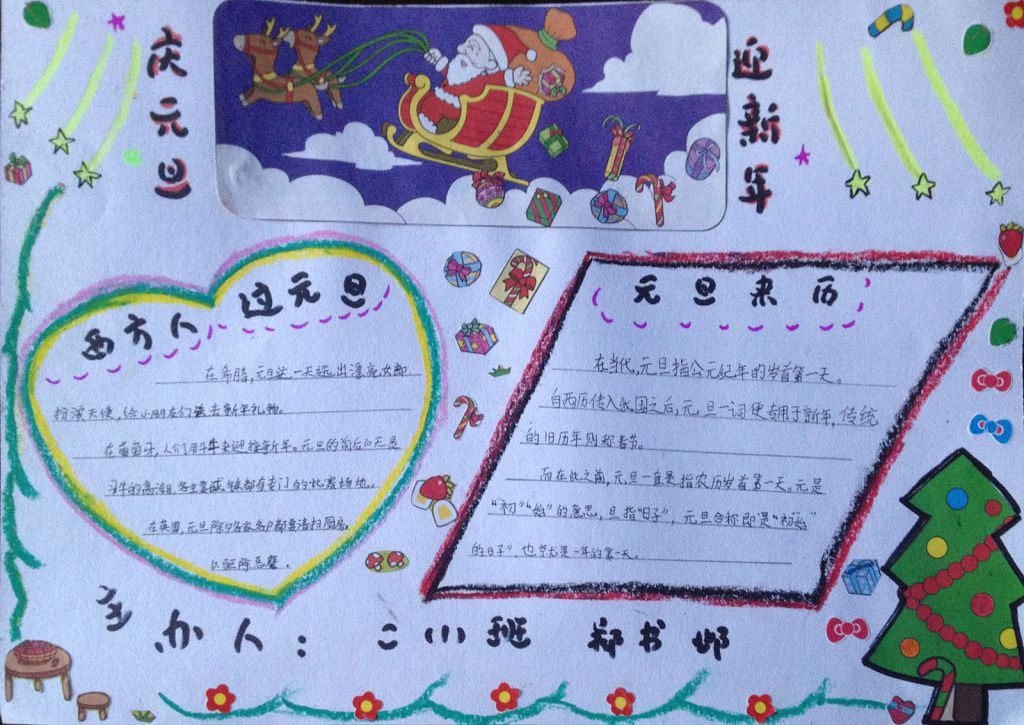 庆元旦
迎新年
西方人过元旦
在希腊,元旦这一天选出漂亮女郎
扮演天使,给小朋友们送去新年礼物。
在葡萄牙,人们用斗牛来迎接新年。元旦的前后10天是
斗牛的高潮,各主要城镇都有专门的比赛场地。
在英国,元旦除夕各家各户都要清扫厨房,
以驱除恶魔。
元旦来历
在当代,元旦指公元纪年的岁首第一天。
自西历传入我国之后,元旦一词便专用于新年,传统
的旧历年则称春节。
而在此之前,元旦一直是指农历岁首第一天。元是
“初”“始”的意思,旦指“日子”,元旦合称即是“初始”
的日子”,也就是一年的第一天。
主办人:二(1)班 郑书